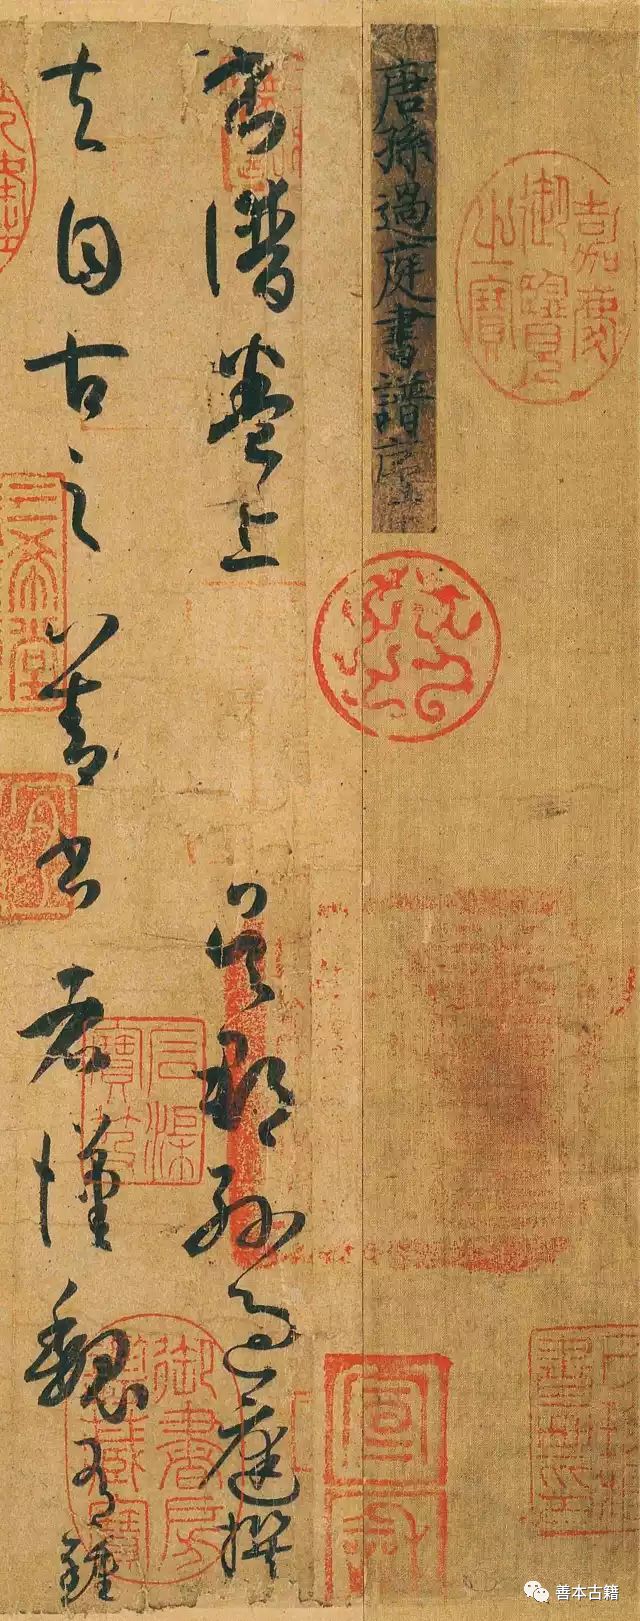 嘉慶御覽之寶
唐孫過庭書譜序
書譜卷上
吳郡孫過庭撰
夫自古之善書者漢魏有鍾
宣和
石渠寶笈
御書房鑑藏寶
三希堂
善本古籍